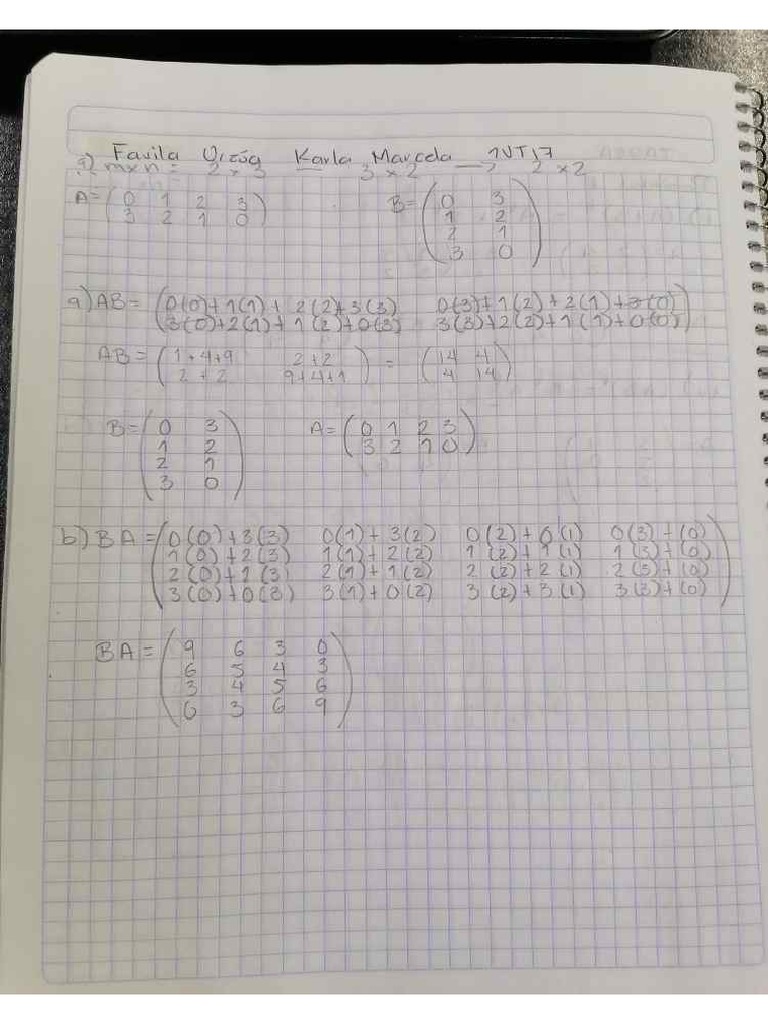 Favila Urzúa Karla Marcela — 1VT17
a) m×n = 2×3 3×2 → 2×2
A = (0 1 2 3 B = (0 3
3 2 1 0) 1 2
2 1
3 0)
a) AB = (0(0)+1(1)+2(2)+3(3) 0(3)+1(2)+2(1)+3(0)
3(0)+2(1)+1(2)+0(3) 3(3)+2(2)+1(1)+0(0))
AB = (1+4+9 2+2 ) = (14 4
2+2 9+4+1) 4 14)
B = (0 3 A = (0 1 2 3
1 2 3 2 1 0)
2 1
3 0)
b) BA = (0(0)+3(3) 0(1)+3(2) 0(2)+0(1) 0(3)+(0)
1(0)+2(3) 1(1)+2(2) 1(2)+1(1) 1(3)+(0)
2(0)+1(3) 2(1)+1(2) 2(2)+2(1) 2(3)+(0)
3(0)+0(3) 3(1)+0(2) 3(2)+3(1) 3(3)+(0))
BA = (9 6 3 0
6 5 4 3
3 4 5 6
6 3 6 9)